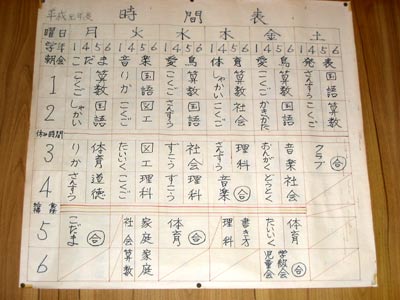 時間表
平成元年度
曜日 月 火 水 木 金 土
学年 1 4 5 6 1 4 5 6 1 4 5 6 1 4 5 6 1 4 5 6 1 4 5 6
朝会 だま 音楽 愛鳥 体育 愛 発表
1 こくご 算数 りか 国語 こくご 算数 しゃかい 国語 こくご 算数 さんすう 国語
2 しゃかい 国語 こくご 図工 さんすう 国語 こくご 社会 かきかた 国語 こくご 算数
休み時間
3 りか 体育 たいいく 図工 ずこう 社会 さんすう 理科 おんがく 音楽 クラブ 合
4 さんすう 道徳 こくご 理科 ずこう 理科 音楽 合 どうとく 社会
5 こだま 合 社会 家庭 体育 合 理科 書き方 たいいく 体育
6 算数 家庭 児童会 学級会 合